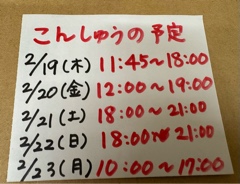 こんしゅうの予定
2/19(木) 11:45~18:00
2/20(金) 12:00~19:00
2/21(土) 18:00~21:00
2/22(日) 18:00~21:00
2/23(月) 10:00~17:00